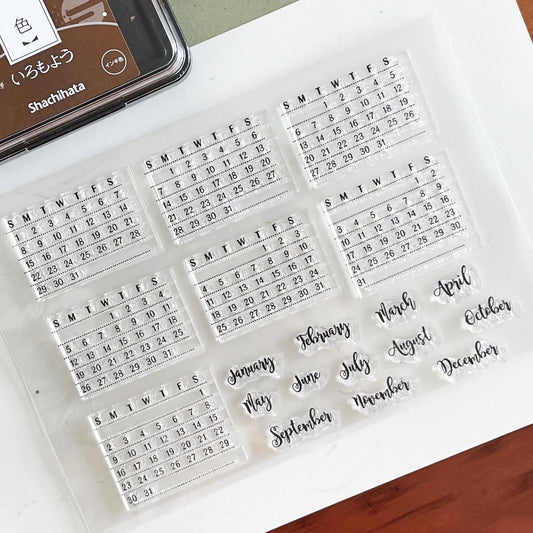 色
いろもよう
インキ色
Shachihata
S M T W T F S
1 2 3 4 5 6 7
8 9 10 11 12 13 14
15 16 17 18 19 20 21
22 23 24 25 26 27 28
29 30 31
S M T W T F S
1 2 3 4 5 6
7 8 9 10 11 12 13
14 15 16 17 18 19 20
21 22 23 24 25 26 27
28 29 30 31
S M T W T F S
1 2 3 4 5
6 7 8 9 10 11 12
13 14 15 16 17 18 19
20 21 22 23 24 25 26
27 28 29 30 31
S M T W T F S
1 2 3 4
5 6 7 8 9 10 11
12 13 14 15 16 17 18
19 20 21 22 23 24 25
26 27 28 29 30 31
S M T W T F S
1 2 3
4 5 6 7 8 9 10
11 12 13 14 15 16 17
18 19 20 21 22 23 24
25 26 27 28 29 30 31
S M T W T F S
1 2
3 4 5 6 7 8 9
10 11 12 13 14 15 16
17 18 19 20 21 22 23
24 25 26 27 28 29 30
31
S M T W T F S
1
2 3 4 5 6 7 8
9 10 11 12 13 14 15
16 17 18 19 20 21 22
23 24 25 26 27 28 29
30 31
January
February
March
April
May
June
July
August
October
September
November
December